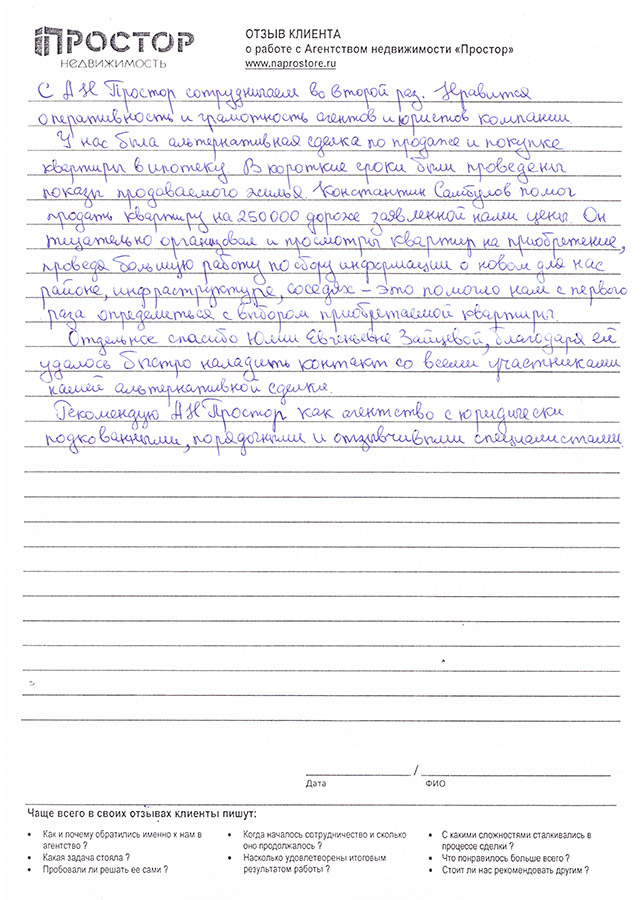 ПРОСТОР
НЕДВИЖИМОСТЬ
ОТЗЫВ КЛИЕНТА
о работе с Агентством недвижимости «Простор»
www.naprostore.ru
С АН Простор сотрудничаем во второй раз. Нравится
оперативность и грамотность агентов и юристов компании.
У нас была альтернативная сделка по продаже и покупке
квартиры в ипотеку. В короткие сроки были проведены
показы продаваемого жилья. Константин Самбулов помог
продать квартиру на 250000 дороже заявленной нами цены. Он
тщательно организовал и просмотры квартир на приобретение,
проведя большую работу по сбору информации о новом для нас
районе, инфраструктуре, соседях – это помогло нам с первого
раза определиться с выбором приобретаемой квартиры.
Отдельное спасибо Юлии Евгеньевне Зайцевой, благодаря ей
удалось быстро наладить контакт со всеми участниками
нашей альтернативной сделки.
Рекомендую АН Простор как агентство с юридически
подкованными, порядочными и отзывчивыми специалистами
/
Дата ФИО
Чаще всего в своих отзывах клиенты пишут:
• Как и почему обратились именно к нам в
агентство ?
• Какая задача стояла ?
• Пробовали ли решать ее сами ?
• Когда началось сотрудничество и сколько
оно продолжалось ?
• Насколько удовлетворены итоговым
результатом работы ?
• С какими сложностями сталкивались в
процессе сделки ?
• Что понравилось больше всего ?
• Стоит ли нас рекомендовать другим ?